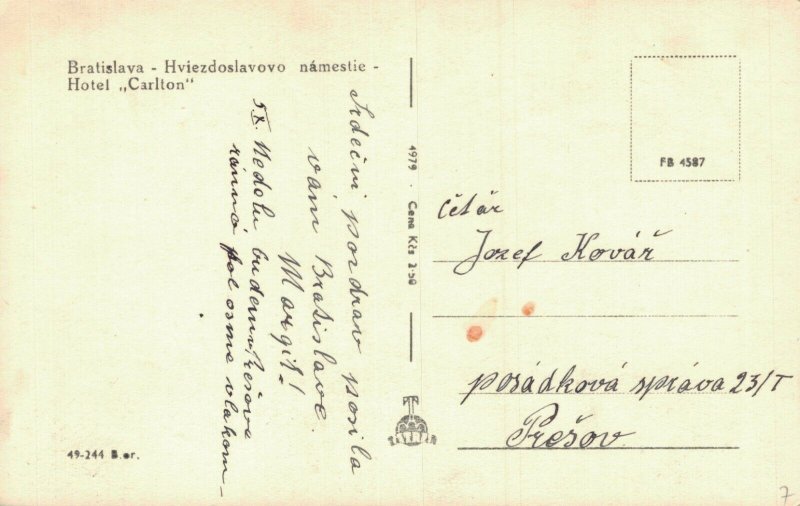 Bratislava - Hviezdoslavovo námestie -
Hotel „Carlton"
Srdečni pozdrav posila
vám Bratislave.
Margit!
5.X. Nedelu budem Prešove
ránnó pol osme vlakom -
4979 · Cena Kčs 2·50
FB 4587
čétár
Jozef Kovář
posádková správa 23/I
Prešov
49-244 B.or.
7